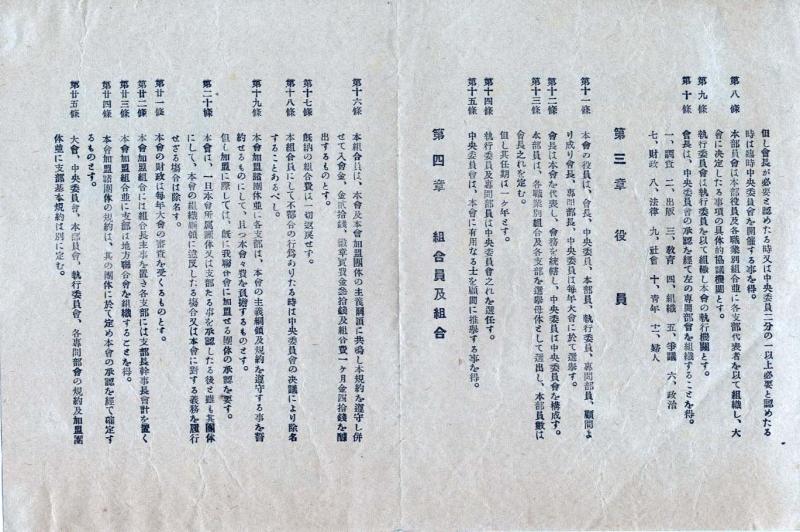 但し會長が必要と認めたる時又は中央委員二分の一以上必要と認めたる
時は臨時中央委員會を開催する事を得。
第八條 本部員會は本部役員及各職業別組合並に各支部代表者を以て組織し、大
會に決定したる事項の具体的協議機關とす。
第九條 執行委員會は執行委員を以て組織し本會の執行機關とす。
第十條 會長は、執行委員會の承認を經て左の專門部會を組織することを得。
一、調査 二、出版 三、教育 四、組織 五、爭議 六、政治
七、財政 八、法律 九、社會 十、靑年 十一、婦人
第三章 役員
第十一條 本會の役員は、會長、中央委員、本部員、執行委員、專門部員、顧問よ
り成り會長、專門部長、中央委員は每年大會に於て選擧す。
第十二條 會長は本會を代表し、會務を統轄し、中央委員は中央委員會を構成す。
第十三條 本部員は、各職業別組合及各支部を選擧母体として選出し、本部員數は
會長之れを定む。
但し其任期は一ヶ年とす。
第十四條 執行委員及專門部員は中央委員會之れを選任す。
第十五條 中央委員會は、本會に有用なる士を顧問に推擧する事を得。
第四章 組合員及組合
第十六條 本組合員は、本會及本會加盟團体の主義綱領に共鳴し本規約を遵守し併
せて入會金、金貳拾錢、徽章實費金叁拾錢及組合費一ヶ月金四拾錢を醵
出するものとす。
第十七條 既納の組合費は一切返戾せず。
第十八條 本組合員にして不都合の行爲ありたる時は中央委員會の決議により除名
することあるべし。
第十九條 本會加盟諸團体並に各支部は、本會の主義綱領及規約を遵守する事を誓
約せるものにして、且つ本會々費を負擔するものとす。
但し加盟に際しては、既に我聯合會に加盟せる團体の承認を要す。
第二十條 本會は、一旦本會所屬團体又は支部たる事を承認したる後と雖も其團体
にして、本會の組織綱領に違反したる場合又は本會に對する義務を履行
せざる場合は除名す。
第廿一條 本會の財政は每年大會の審査を受くるものとす。
第廿二條 本會加盟組合には組合長主事を置き各支部には支部長幹事長會計を置く
第廿三條 本會加盟組合並に支部は地方聯合會を組織することを得。
第廿四條 本會加盟諸團体の規約は、其の團体に於て定め本會の承認を經て確定す
るものとす。
第廿五條 大會、中央委員會、本部員會、執行委員會、各專門部會の規約及加盟團
体並に支部基本規約は別に定む。